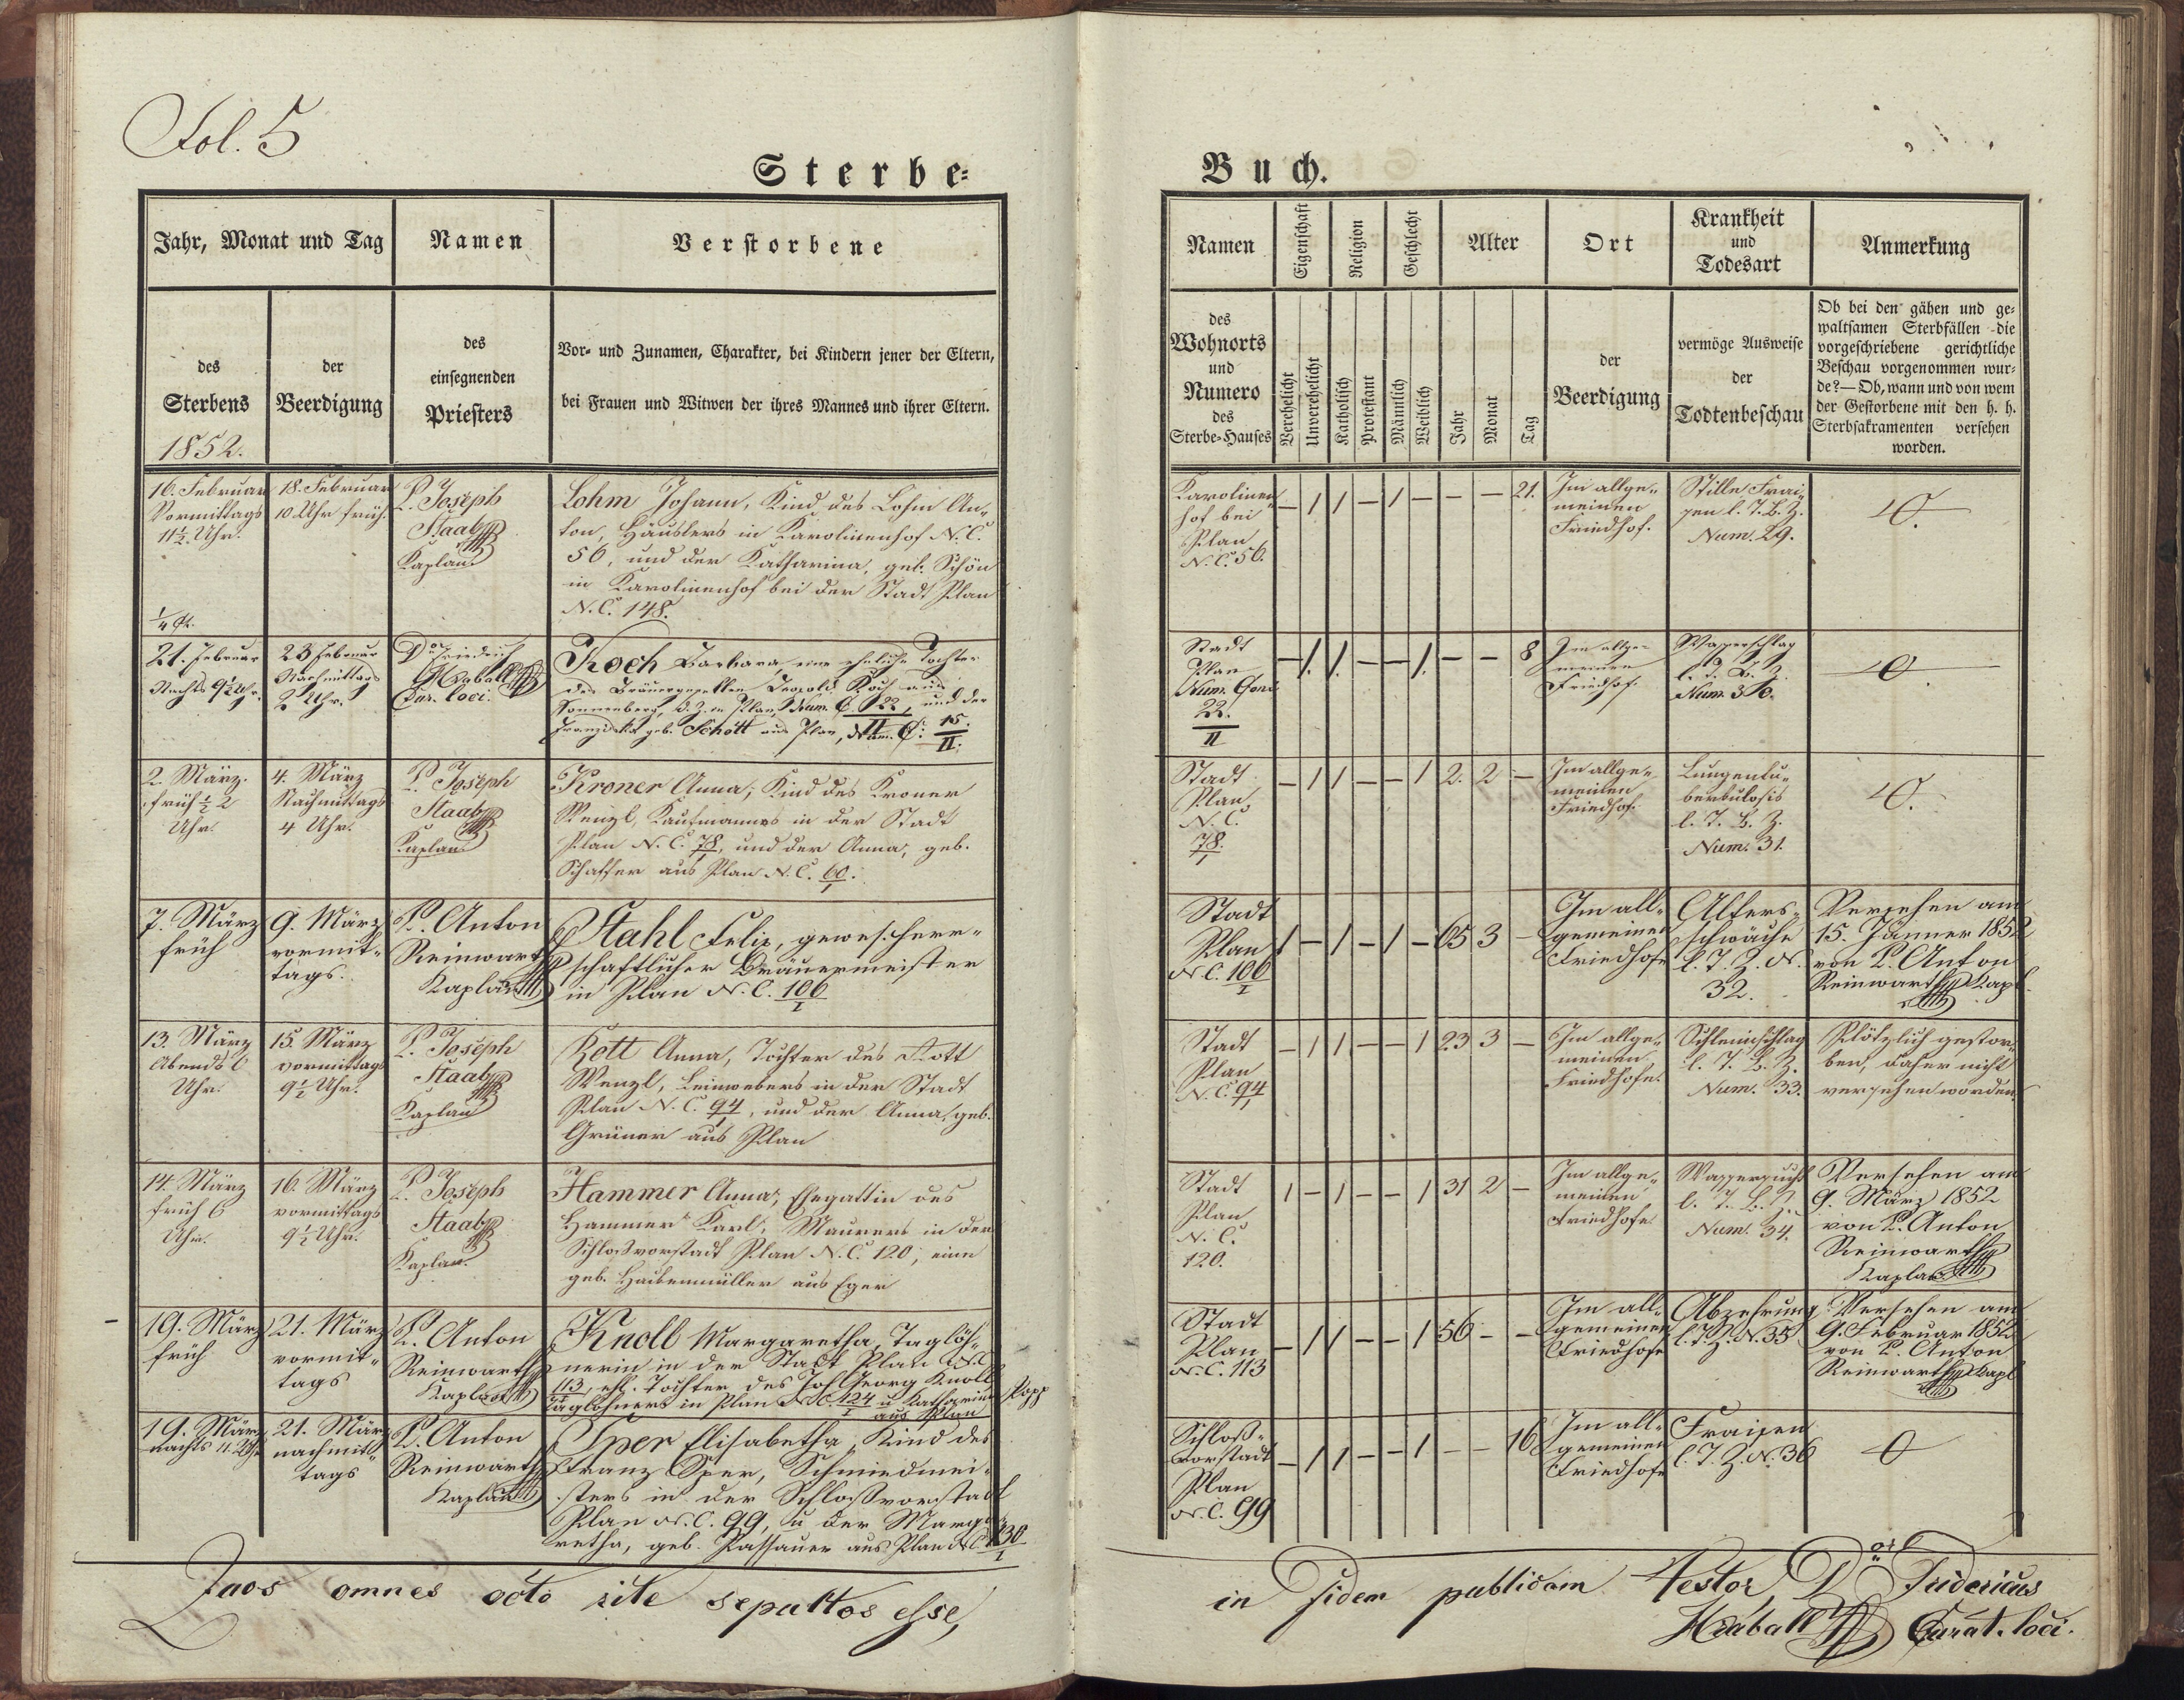 Fol. 5
Sterbe-
Jahr, Monat und Tag
Namen
Verstorbene
des
Sterbens
1852.
der
Beerdigung
des
einsegnenden
Priesters
Vor- und Zunamen, Charakter, bei Kindern jener der Eltern,
bei Frauen und Witwen der ihres Mannes und ihrer Eltern.
16. Februar
Vormittags
11½ Uhr.
18. Februar
10 Uhr früh.
P. Joseph
Staab
Kaplan
Lohm Johann, Kind des Lohm An-
ton, Häuslers in Karolinenhof N. C.
56, und der Katharina, geb. Schön
in Karolinenhof bei der Stadt Plan
N. C. 148.
21. Februar
Nachts 9½ Uhr.
23 Februar
Nachmittags
2 Uhr.
Friedrich
Hraball
Cur. loci.
Koch Barbara eine eheliche Tochter
des Bräuergesellen Leopold Koch aus
Sonnenberg, d. Z. in Plan, Num. C. 22/II, und der
Franziska geb. Schott aus Plan, Num. C: 15/II.
2. März.
früh ½ 2
Uhr.
4. März
Nachmittags
4 Uhr.
P. Joseph
Staab
Kaplan
Kroner Anna, Kind des Kroner
Wenzl, Kaufmannes in der Stadt
Plan N. C. 78/I, und der Anna, geb.
Schaffer aus Plan N. C. 60/I.
7. März
früh
9. März
vormit-
tags.
P. Anton
Reinwarth
Kaplan
Stahl Felix, gewes. herr-
schaftlicher Bräuermeister
in Plan N. C. 106/I
13. März
Abends 6
Uhr.
15. März
vormittags
9½ Uhr.
P. Joseph
Staab
Kaplan
Rott Anna, Tochter des Rott
Wenzl, Leinwebers in der Stadt
Plan N. C. 94/I, und der Anna, geb.
Grüner aus Plan
14. März
früh 6
Uhr.
16. März
vormittags
9½ Uhr.
P. Joseph
Staab
Kaplan
Hammer Anna, Ehegattin des
Hammer Karl, Maurers in der
Schloßvorstadt Plan N. C. 120, eine
geb. Haibenmüller aus Eger
19. März
früh
21. März
vormit-
tags
P. Anton
Reinwarth
Kaplan
Knoll Margaretha, Taglöh-
nerin in der Stadt Plan N. C.
113, ehl. Tochter des Joh. Georg Knoll
Taglöhners in Plan N. C. 124/I u. Katharina Popp
aus Plan
19. März
nachts 11 Uhr
21. März
nachmit-
tags
P. Anton
Reinwarth
Kaplan
Sper Elisabetha, Kind des
Franz Sper, Schmiedmei-
sters in der Schloßvorstadt
Plan N. C. 99, u. der Marga-
retha, geb. Passauer aus Plan N. C. 130/I
omnes octo rite sepultos esse,
Buch.
Namen
Eigenschaft
Religion
Geschlecht
Alter
Ort
Krankheit
und
Todesart
Anmerkung
des
Wohnorts
und
Numero
des
Sterbe-Hauses
Verehelicht
Unverehelicht
Katholisch
Protestant
Männlich
Weiblich
Jahr
Monat
Tag
der
Beerdigung
vermöge Ausweise
der
Todtenbeschau
Ob bei den gähen und ge-
waltsamen Sterbfällen die
vorgeschriebene gerichtliche
Beschau vorgenommen wur-
de? — Ob, wann und von wem
der Gestorbene mit den h. h.
Sterbsakramenten versehen
worden.
Karolinen-
hof bei
Plan
N. C. 56.
– 1 1 – 1 – – – 21.
Im allge-
meinen
Friedhof.
Stille Frai-
sen l. T. B. Z.
Num. 29.
0.
Stadt
Plan
Num. Cons
22.
II
– 1. 1. – – 1. – – 8
Im allge-
meinen
Friedhof.
Wasserschlag
l. T. B. Z.
Num. 30.
0.
Stadt
Plan
N. C.
78.
I
– 1 1 – – 1 2. 2 –
Im allge-
meinen
Friedhof.
Lungentu-
berkulosis
l. T. B. Z.
Num. 31.
0.
Stadt
Plan
N. C. 106
I
1 – 1 – 1 – 65 3 –
Im all-
gemeinen
Friedhofe
Alters-
schwäche
l. T. Z. N.
32.
Versehen am
15. Jänner 1852
von P. Anton
Reinwarth Kapl.
Stadt
Plan
N. C. 94
I
– 1 1 – – 1 23 3 –
Im allge-
meinen
Friedhofe.
Schleimschlag
l. T. B. Z.
Num. 33.
Plötzlich gestor-
ben, daher nicht
versehen worden.
Stadt
Plan
N. C.
120.
1 – 1 – – 1 31 2 –
Im allge-
meinen
Friedhofe
Wassersucht
l. T. B. Z.
Num. 34.
Versehen am
9. März 1852
von P. Anton
Reinwarth
Kaplan
Stadt
Plan
N. C. 113
– 1 1 – – 1 56 – –
Im all-
gemeinen
Friedhofe
Abzehrung
l. T. Z. N. 35
Versehen am
9. Februar 1852
von P. Anton
Reinwarth Kapl
Schloß-
vorstadt
Plan
N. C. 99
– 1 1 – – 1 – – 16
Im all-
gemeinen
Friedhofe
Fraisen
l. T. Z. N. 36
0
in fidem publicam Testor Fridericus
Hraball Curat. loci.